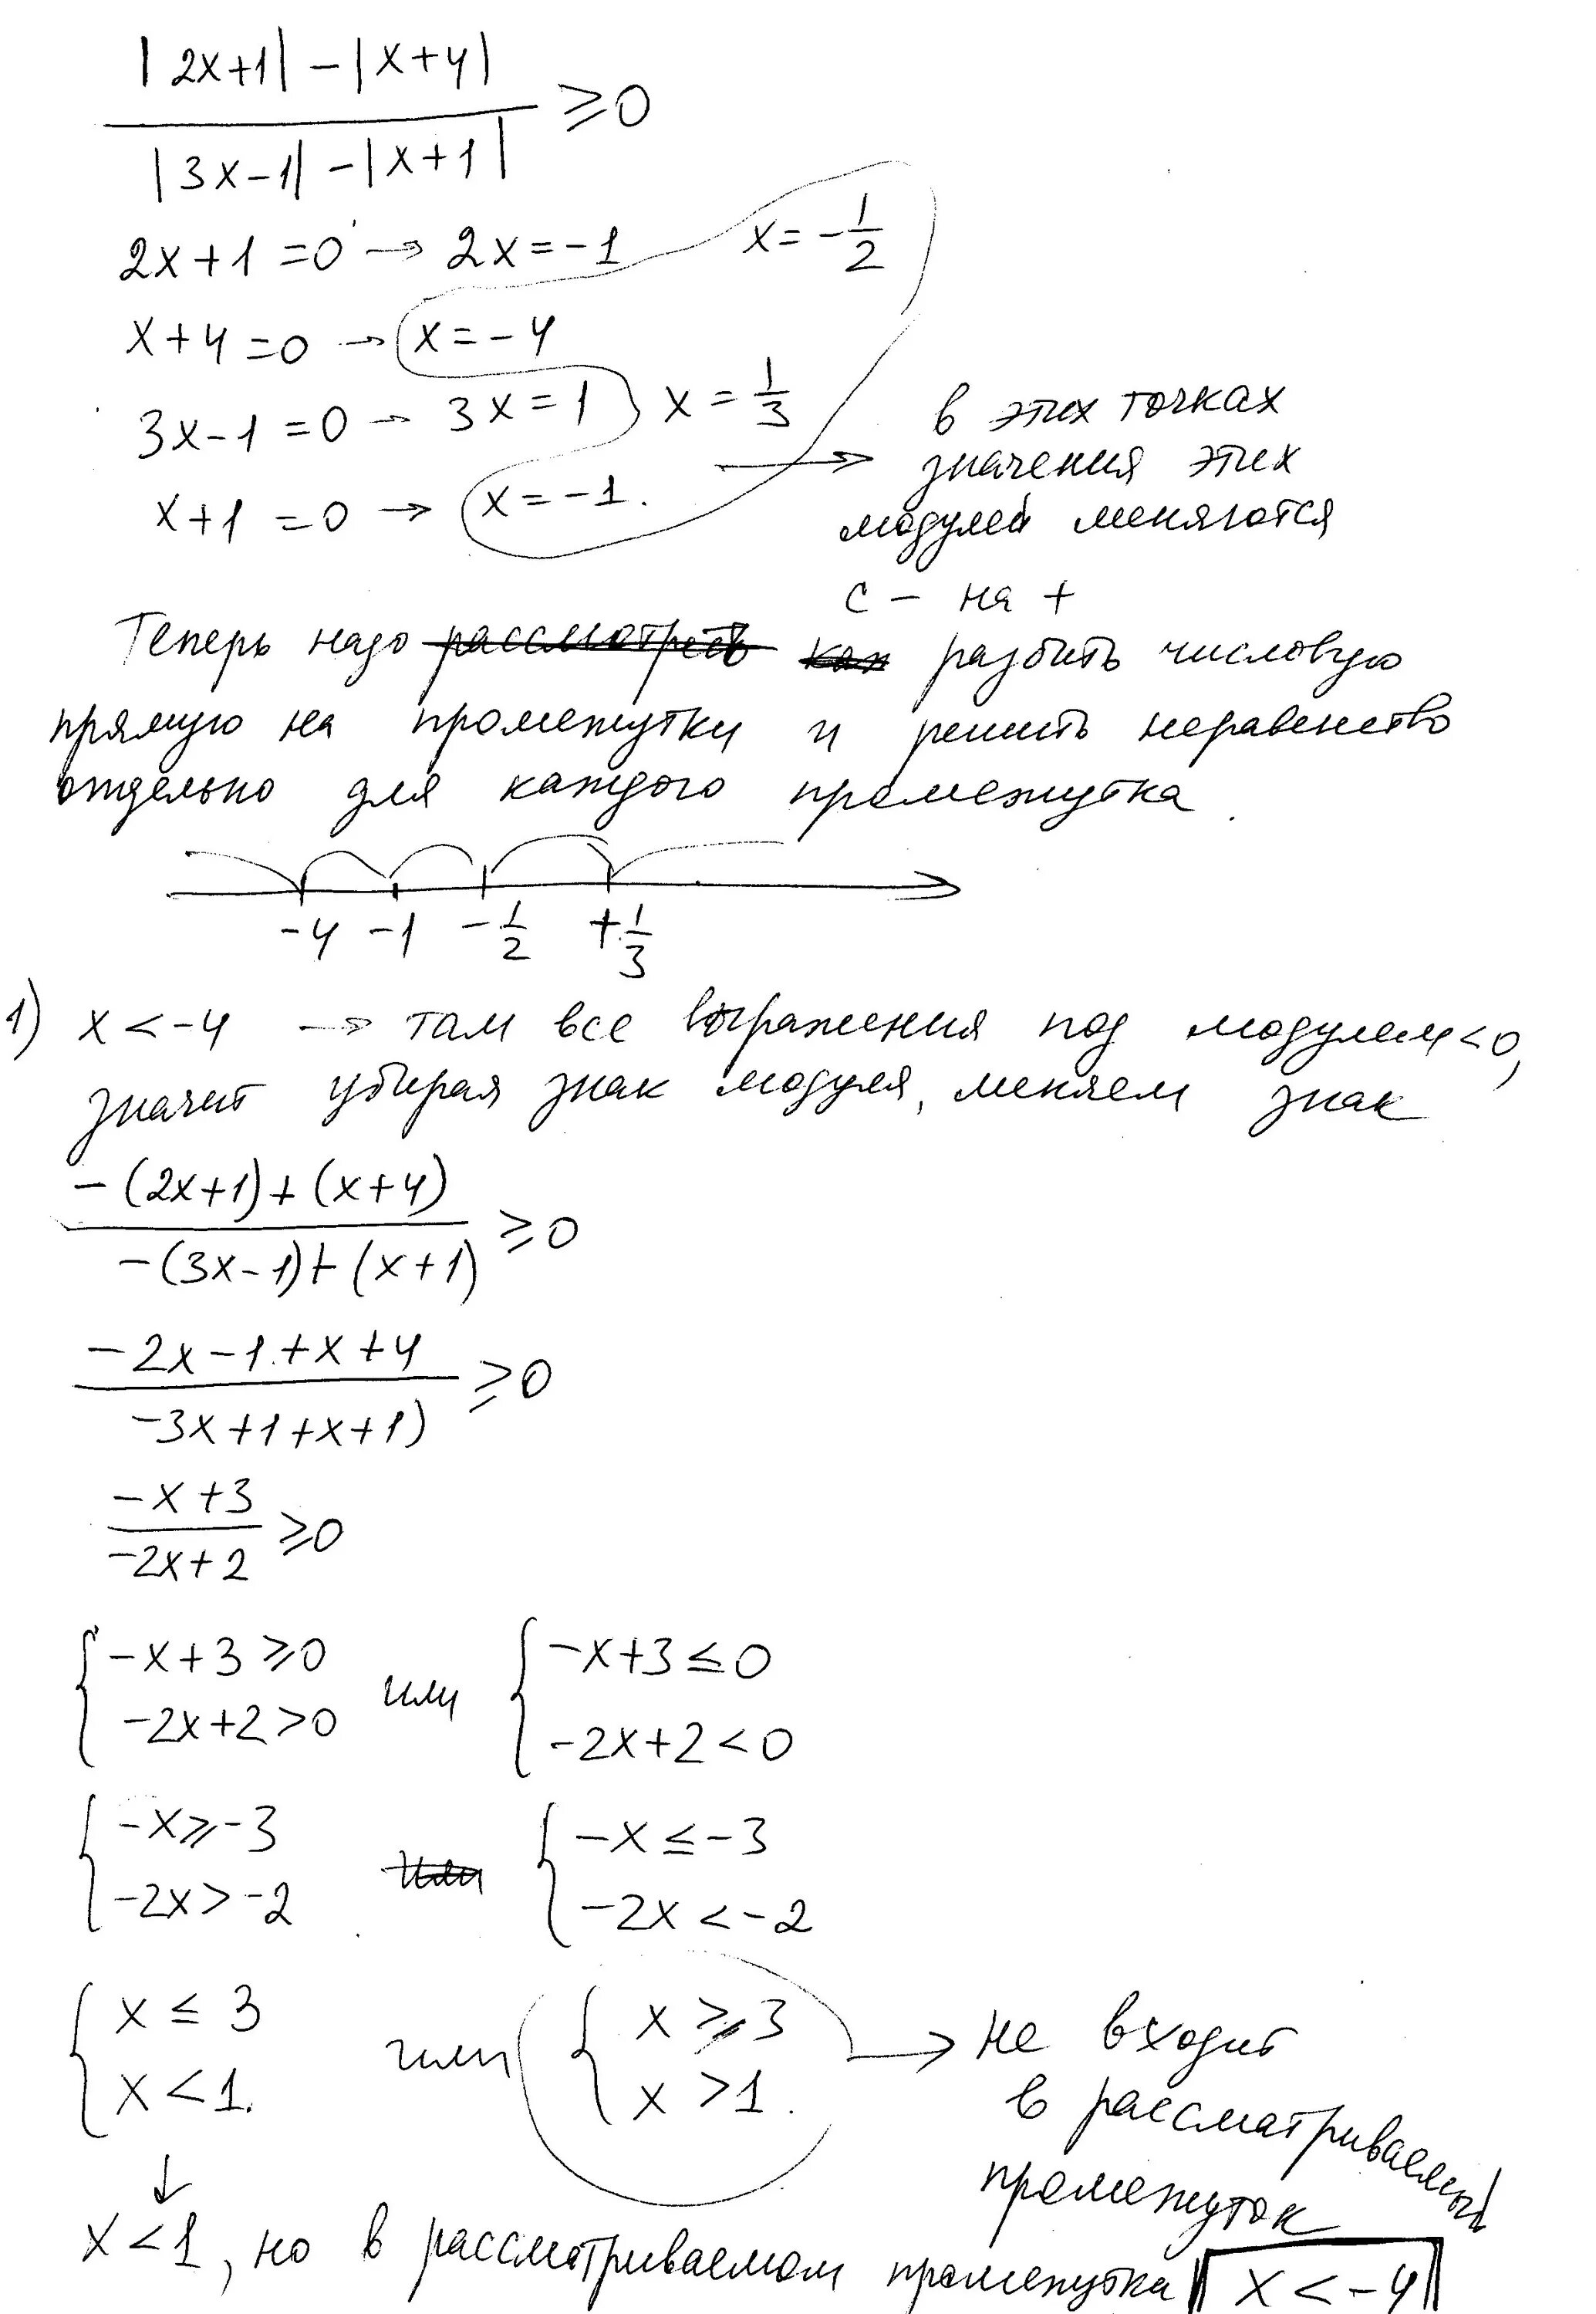 |2x+1| - |x+4|
|3x-1| - |x+1|
≥0
2x+1=0 → 2x=-1 x=-1/2
x+4=0 → x=-4
3x-1=0 → 3x=1 x=1/3
x+1=0 → x=-1.
→ в этих точках
значения этих
модулей меняются
с - на +
Теперь надо рассмотреть как разбить числовую
прямую на промежутки и решить неравенство
отдельно для каждого промежутка.
-4 -1 -1/2 +1/3
1) x<-4 → там все выражения под модулем<0,
значит убирая знак модуля, меняем знак
-(2x+1)+(x+4)
-(3x-1)+(x+1)
≥0
-2x-1+x+4
-3x+1+x+1)
≥0
-x+3
-2x+2
≥0
{ -x+3≥0 или { -x+3≤0
-2x+2>0 -2x+2<0
{ -x≥-3 или { -x≤-3
-2x>-2 -2x<-2
{ x≤3 или { x≥3 → не входит
x<1. x>1. в рассматриваемый
промежуток
↓
x<1, но в рассматриваемом промежутка x<-4